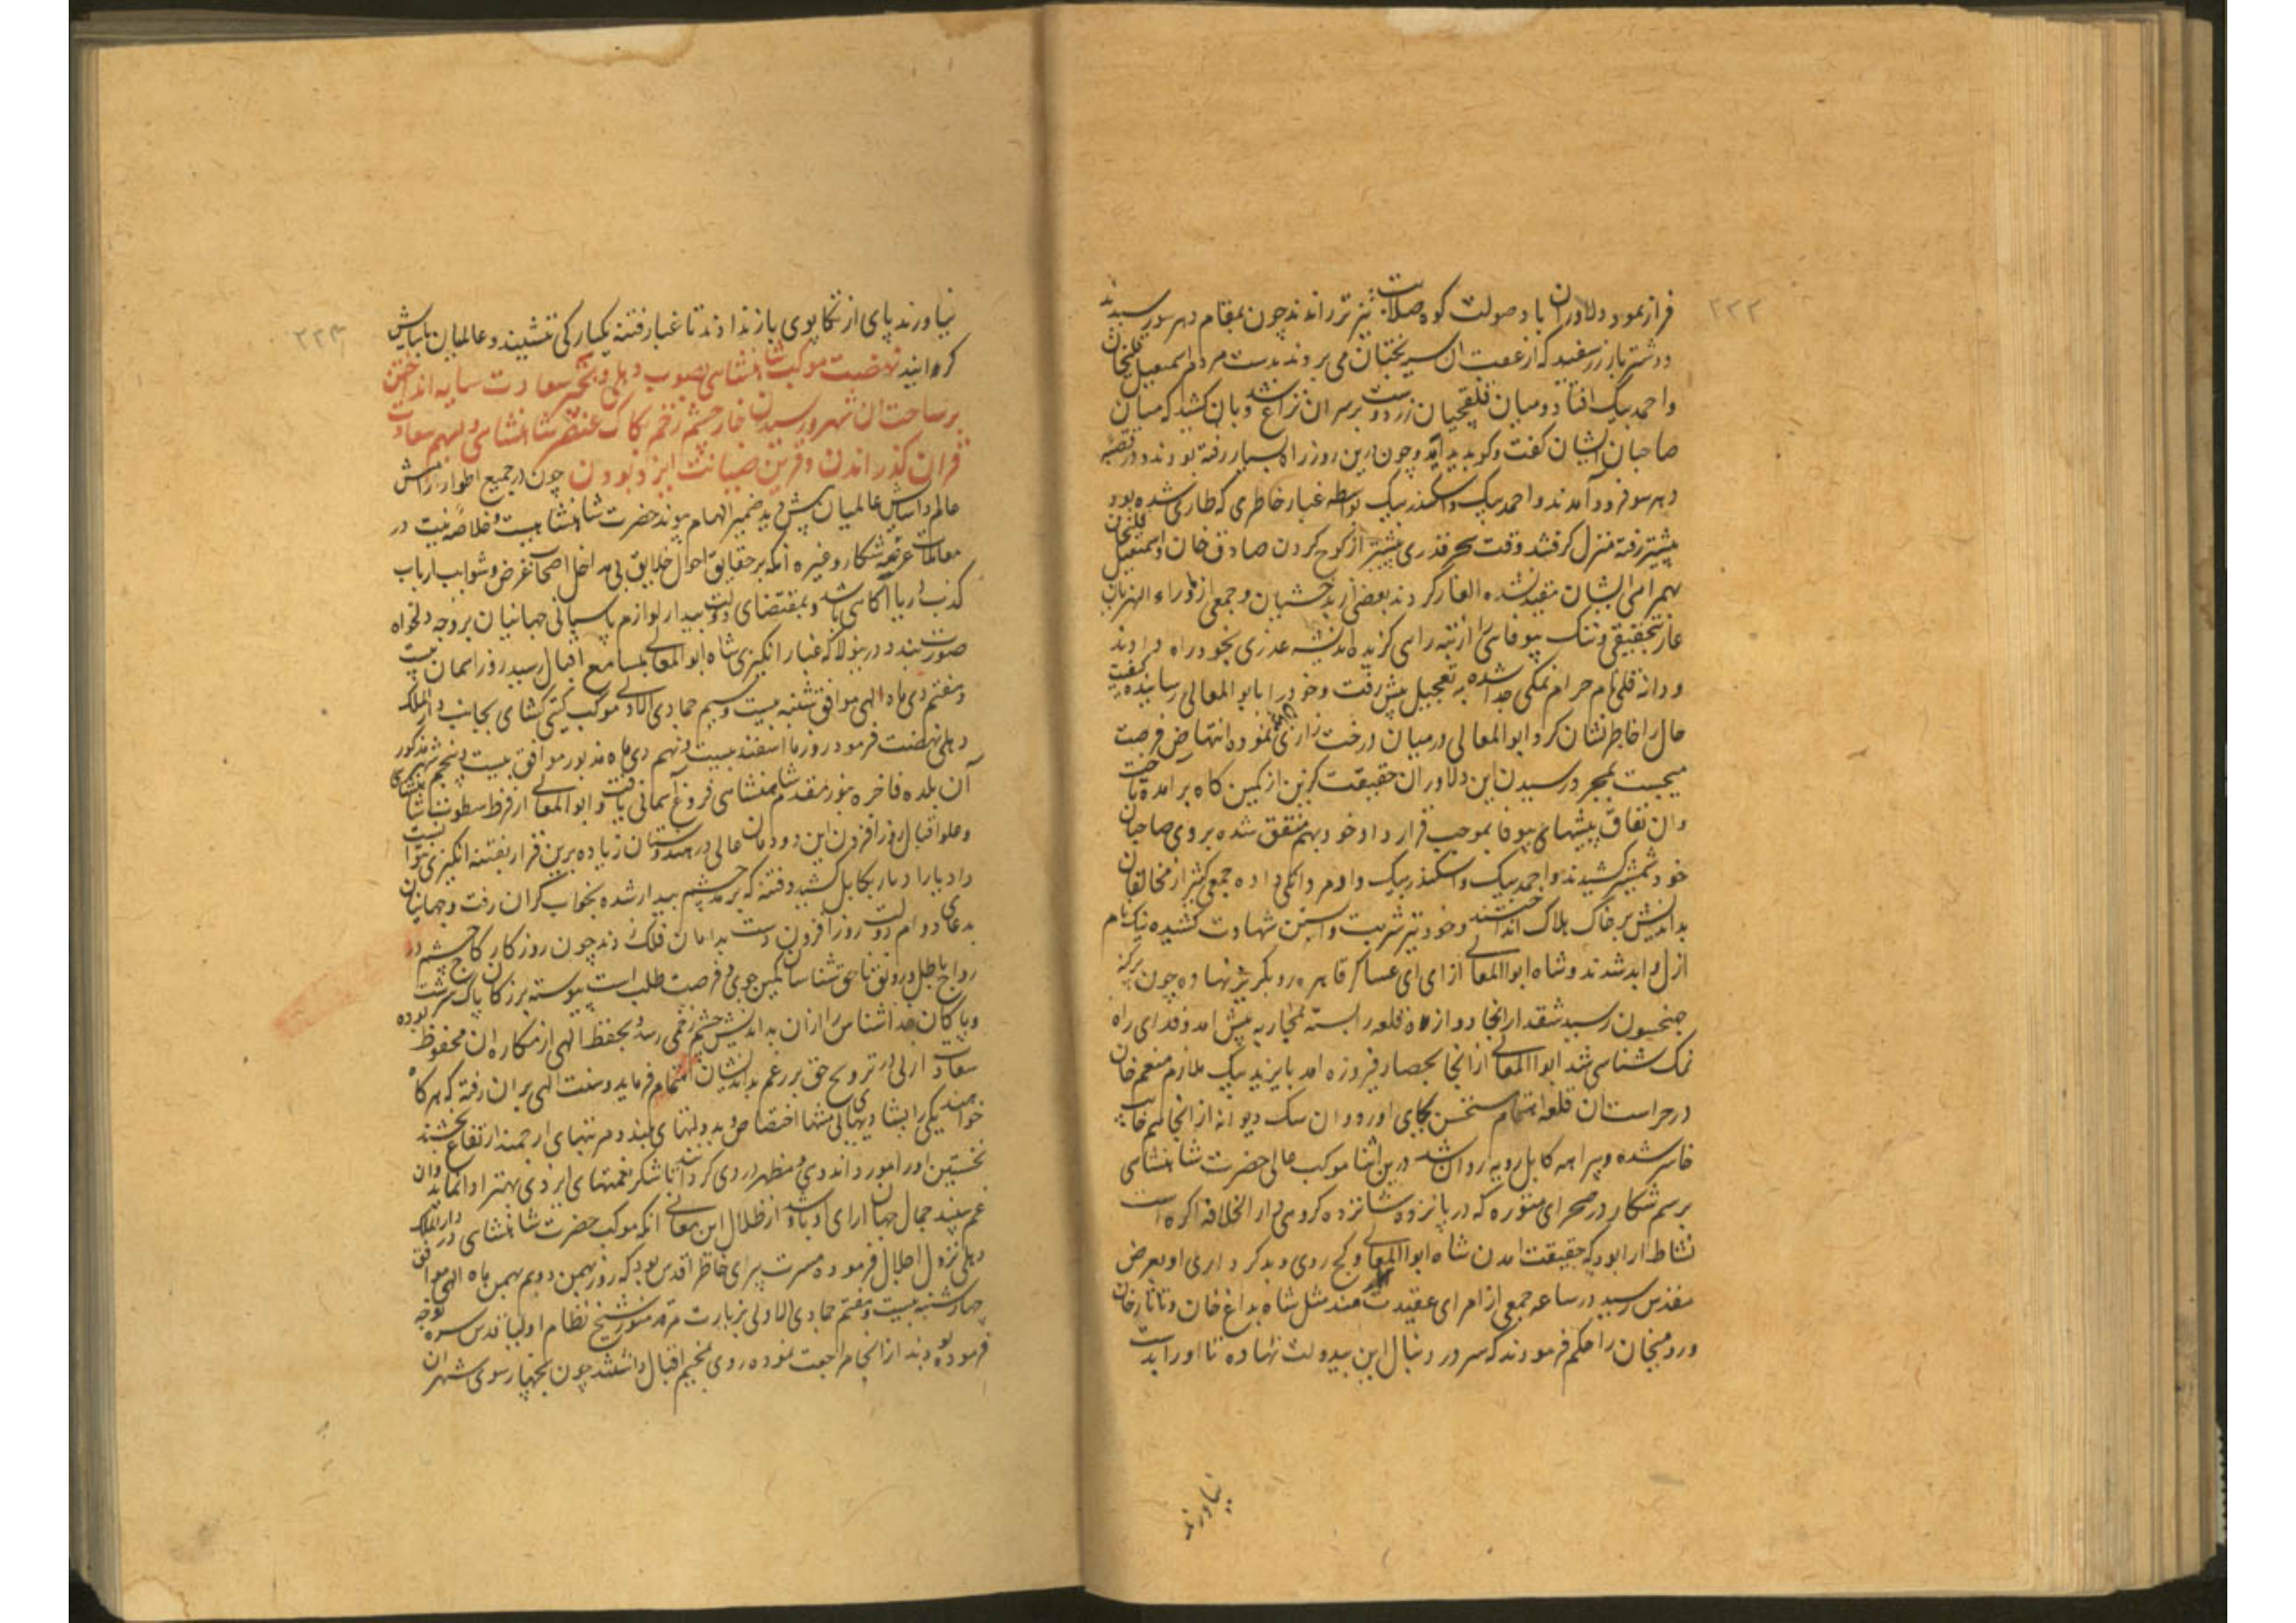 ۲۲۲
فراز نمود دلاوران باد صولت کوه صلابت تیزتر راندند چون بمقام دهرسو رسیدند
دو شتر بار زر سفید که از عقب ان سر بختیان می بروند بدست مردم اسمعیل قلیخان
واحمد بیک افتاد و میان قلقچیان زر دوست برسر ان نزاع شد وبان کشید که میان
صاحبان ایشان گفت وکو پدید آید وچون درین روز راه بسیار رفته بودند ودر قصبه
دهرسو فرود آمدند واحمد بیک واسکندر بیک بواسطه غبار خاطری که طاری شده بود
پیشتر رفته منزل کرفتند وقت سحر قدری پیشتر از کوچ کردن صادق خان واسمعیل قلیخان
بهمراهی ایشان مقید نشده ایلغار کردند بعضی از بدخشیان وجمعی از ماوراء النهریان
عار حقیقی وننک بیوفائی از تبه راهی گزیده اندیشه عذری بخود راه دادند
و دانه قلی نام حرام نمکی جدا شده به تعجیل پیش رفت وخود را بابو المعالی رسانیده کیفیت
حال را خاطرنشان کرد ابو المعالی در میان درخت زاری نموده انتهاض فرصت
میجست بمجرد رسیدن این دلاوران حقیقت گزین از کمین کاه برآمده تاخت
وان نفاق پیشهای بیوفا بموجب قرار داد خود بهم متفق شده بروی صاحبان
خود شمشیر کشیدند واحمد بیک واسکندر بیک داد مردانکی داده جمعی کثیر از مخالفان
بداندیش بر خاک هلاک انداختند وخود نیز شربت واپسین شهادت کشیده نیک نام
ازل وابد شدند وشاه ابو المعالی از امرای عساکر قاهره رو بگریز نهاده چون برکنه
جنجسون رسید شقدار انجا دروازه قلعه را بسته بمحاربه پیش امد وفدای راه
نمک شناسی شد ابو المعالی از انجا بحصار فیروزه امد بایزید بیک ملازم منعم خان
در حراست ان قلعه اهتمام مستحسن بجای اورد وان سک دیوانه از انجا هم خایب
خاسر شده وبیراهه کابل رویه روان شد درین اثنا موکب عالی حضرت شاهنشاهی
برسم شکار در صحرای متوره که در پانزده شانزده کروهی دار الخلافه اکره است
نشاط ارا بود که حقیقت امدن شاه ابو المعالی وکج روی وبدکرداری او بعرض
مقدس رسید در ساعه جمعی از امرای عقیدت مند مثل شاه بداغ خان وتاتار خان
ورومیخان را حکم فرمودند که سر در دنبال این بیدولت نهاده تا اورا بدست
نیاورند
۲۲۳
نیاورند پای از تکاپوی باز ندارند تا غبار فتنه یکبارکی نشیند وعالمیان باسایش
کرایند نهضت موکب شاهنشاهی بصوب دهلی وبخیر سعادت سایه انداختن
بر ساحت ان شهر ورسیدن خار چشم زخم بکاک عنصر شاهنشاهی وبیمن سعادت
قران کذراندن وقرین صیانت ایزد بودن چون در جمیع اطوار ارامش
عالم واسایش عالمیان پیش دید ضمیر الهام پیوند حضرت شاهنشاهیست وخلاصه نیت در
معاملات عزیمه شکار وغیره آنکه بر حقایق احوال خلایق بی مداخل اصحاب غرض وشوایب ارباب
کذب وریا آکاهی باشد وبمقتضای دولت بیدار لوازم پاسبانی جهانیان بر وجه دلخواه
صورت بندد درینولا که غبار انکیزی شاه ابو المعالی بمسامع اقبال رسید روز اسمان بیست
وهفتم دی ماه الهی موافق شنبه بیست وسیم جمادی الاولی موکب کیتی کشای بجانب دار الملک
دهلی نهضت فرمود روز ما اسفند بیست ونهم دی ماه مذبور موافق بیست وپنجم شهر مذکور
آن بلده فاخره بنور مقدم شاهنشاهی فروغ آسمانی یافت وابو المعالی از فرط سطوت شاهنشاهی
وعلو اقبال روز افزون این دودمان عالی در هندوستان زیاده برین قرار بفتنه انکیزی نتوانست
داد بارا دبار بکابل کشید وفتنه که بر مد چشم بیدار شده بخواب کران رفت وجهانیان
بدعای دوام دولت روز افزون دست بدامان فلک زدند چون روز کار کاج چشم در
رواج باطل ورونق ناحق شناسان کمین جوی وفرصت طلب است پیوسته بر زکان پاک سرشت
وپاکان خدا شناس را ازان بداندیش چشم زخمی رسد وبحفظ الهی از مکاره ان محفوظ بوده
سعادت ازلی در ترویج حق بر رغم بداندیشان اهتمام فرماید وسنت الهی بران رفته که هرکاه
خواهند یکی را بشادیهای بی منتها اختصاص وبدولتهای بلند ومرتبهای ارجمند ارتفاع بخشند
نخستین اورا مورد اندوهی ومظهر دردی کردانند تا شکر نعمتهای ایزدی بهتر ادا نماید وان
غم سپند جمال جهان ارای او باشد از ظلال این معانی انکه موکب حضرت شاهنشاهی در دار الملک
دهلی نزول اجلال فرموده مسرت پیرای خاطر اقدس بود که روز بهمن دویم بهمن ماه الهی موافق
چهارشنبه بیست وهفتم جمادی الاولی بزیارت مرقد منور شیخ نظام اولیا قدس سره توجه
فرموده بودند از انجا مراجعت نموده روی بمخیم اقبال داشتند چون بچهار سوی شهر ان